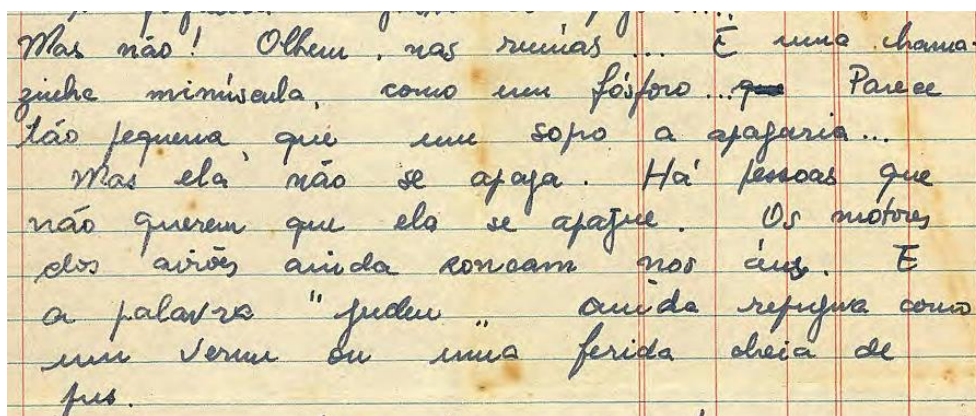 Mas não! Olhem, nas ruínas... É uma chama-
zinha minúscula, como um fósforo... Parece
tão pequena, que um sopro a apagaria...
Mas ela não se apaga. Há pessoas que
não querem que ela se apague. Os motores
dos aviões ainda roncam nos céus. E
a palavra "judeu" ainda repugna como
um verme ou uma ferida cheia de
pus.